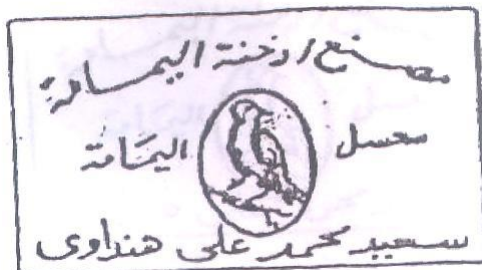 مصنع ادخنة اليمامة
معسل اليمَامة
سعيد محمد على هنداوى